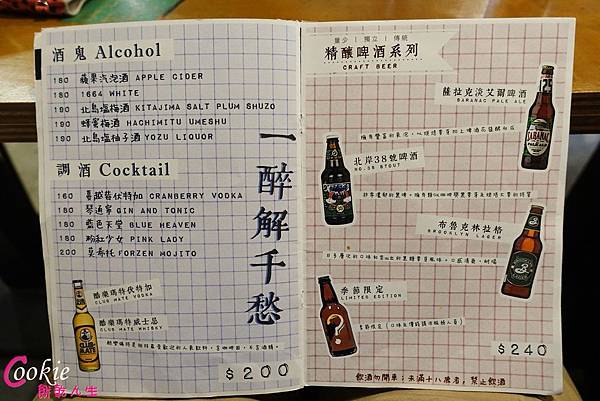 酒鬼 Alcohol
180 蘋果汽泡酒 APPLE CIDER
180 1664 WHITE
190 北島塩梅酒 KITAJIMA SALT PLUM SHUZO
190 蜂蜜梅酒 HACHIMITU UMESHU
190 北島塩柚子酒 YOZU LIQUOR
一醉解千愁
調酒 Cocktail
160 蔓越莓伏特加 CRANBERRY VODKA
180 琴通寧 GIN AND TONIC
180 藍色天堂 BLUE HEAVEN
180 粉紅少女 PINK LADY
200 莫希托 FORZEN MOJITO
酷樂瑪特伏特加
CLUB MATE VODKA
酷樂瑪特威士忌
CLUB MATE WHISKY
$200
量少 | 獨立 | 傳統
精釀啤酒系列
CRAFT BEER
薩拉克淡艾爾啤酒
SARANAC PALE ALE
北岸38號啤酒
NO.38 STOUT
布魯克林拉格
BROOKLYN LAGER
季節限定
LIMITED EDITION
$240
飲酒勿開車；未滿十八歲者，禁止飲酒
Cookie
餅乾人生